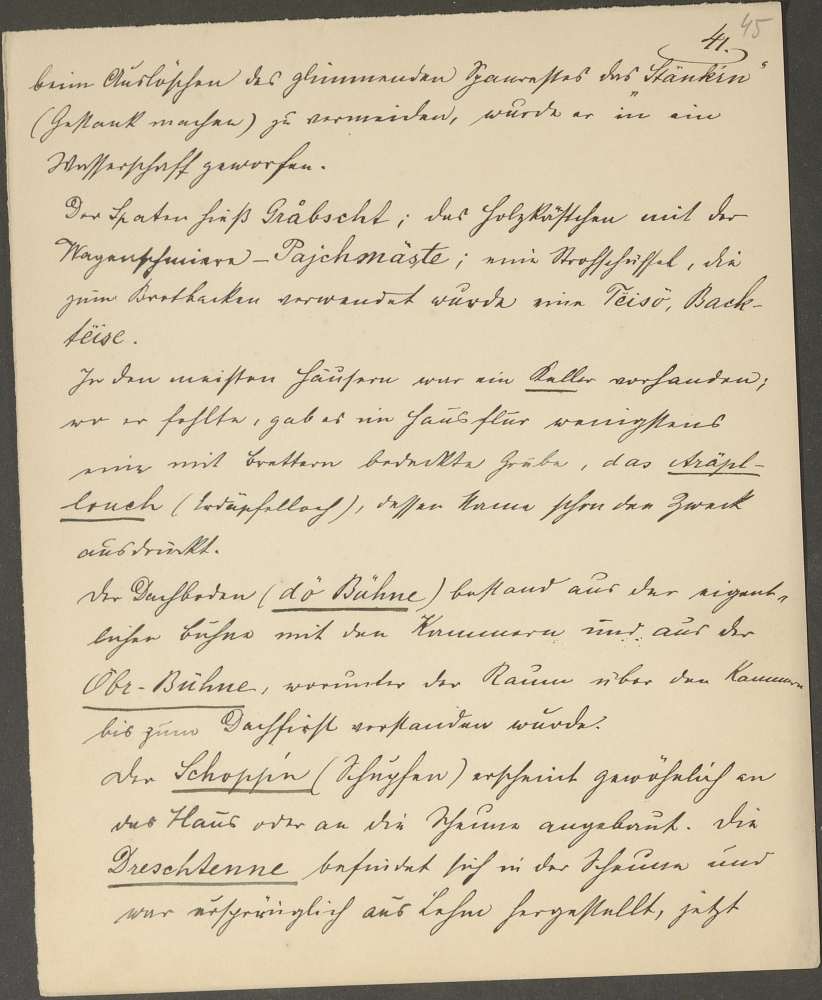 45
41.
beim Auslöschen des glimmenden Spanrestes das „Stänkrn“
(Gestank machen) zu vermeiden, wurde er in ein
Wasserschaff geworfen.
Der Spaten hieß Gråbscht; das Holzkästchen mit der
Wagenschmiere – Pajchmäste; eine Strohschüssel, die
zum Brotbacken verwendet wurde eine Tëisö, Back-
tëise.
In den meisten Häusern war ein Keller vorhanden;
wo er fehlte, gab es im Hausflur wenigstens
eine mit Brettern bedeckte Grube, das Aräpl-
louch (Erdäpfelloch), dessen Name schon den Zweck
ausdrückt.
Der Dachboden (dö Bühne) bestand aus der eigent-
lichen Bühne mit den Kammern und aus der
Öbr-Bühne, worunter der Raum über den Kammern
bis zum Dachfirst verstanden wurde.
Der Schoppïn (Schupfen) erscheint gewöhnlich an
das Haus oder an die Scheune angebaut. Die
Dreschtenne befindet sich in der Scheune und
war ursprünglich aus Lehm hergestellt, jetzt